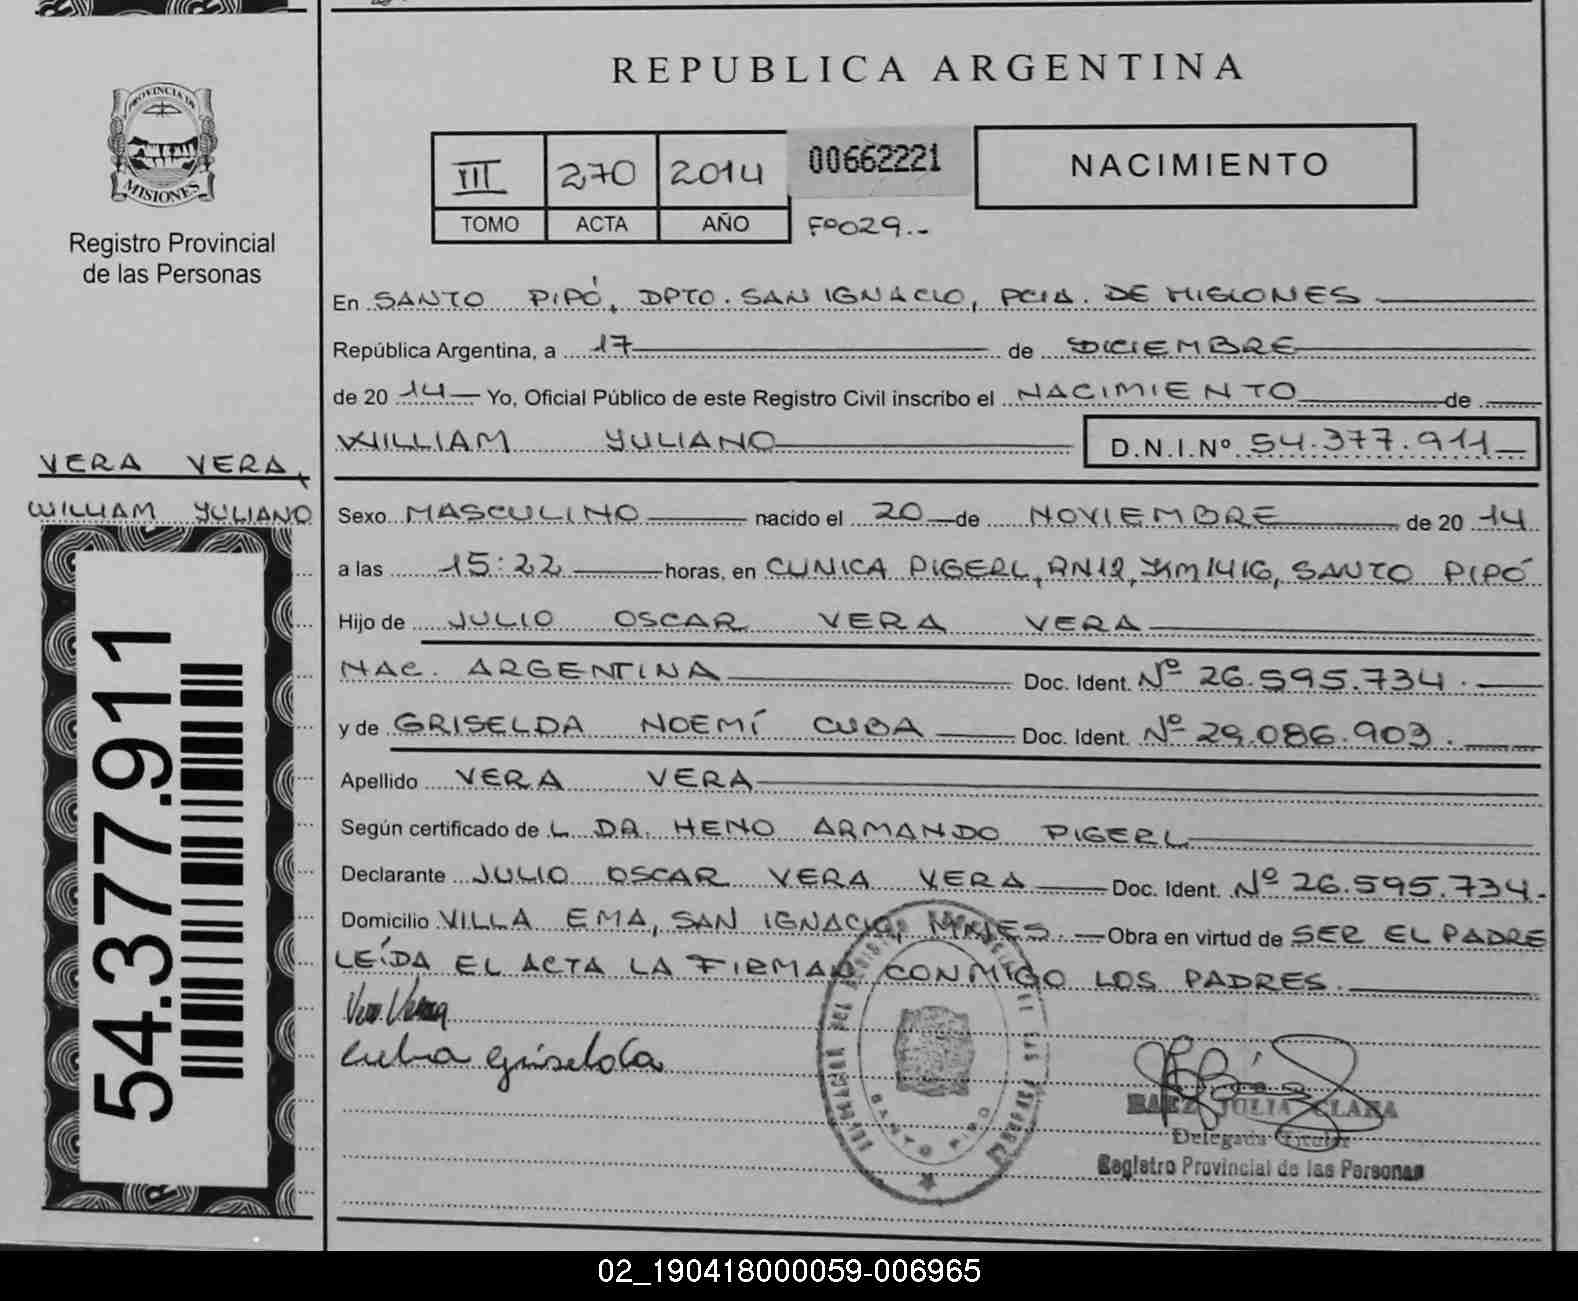 REPUBLICA ARGENTINA
PROVINCIA DE
MISIONES
Registro Provincial
de las Personas
III 270 2014 00662221 NACIMIENTO
TOMO ACTA AÑO Fº029.-
En SANTO PIPÓ, DPTO. SAN IGNACIO, PCIA. DE MISIONES
República Argentina, a 17 de DICIEMBRE
de 20 14 Yo, Oficial Público de este Registro Civil inscribo el NACIMIENTO de
WILLIAM YULIANO D.N.I.Nº 54.377.911
VERA VERA,
WILLIAM YULIANO
54.377.911
Sexo MASCULINO nacido el 20 de NOVIEMBRE de 20 14
a las 15:22 horas, en CLINICA PIGERL, RN12, KM1416, SANTO PIPÓ
Hijo de JULIO OSCAR VERA VERA
NAC. ARGENTINA Doc. Ident. Nº 26.595.734.
y de GRISELDA NOEMÍ CUBA Doc. Ident. Nº 29.086.903.
Apellido VERA VERA
Según certificado de L DR. HENO ARMANDO PIGERL
Declarante JULIO OSCAR VERA VERA Doc. Ident. Nº 26.595.734.-
Domicilio VILLA EMA, SAN IGNACIO, MNES. Obra en virtud de SER EL PADRE
LEÍDA EL ACTA LA FIRMAN CONMIGO LOS PADRES.
Vera Vera
Cuba Griselda
SANTO PIPO
BAEZ JULIA CLARA
Delegada Titular
Registro Provincial de las Personas
02_190418000059-006965